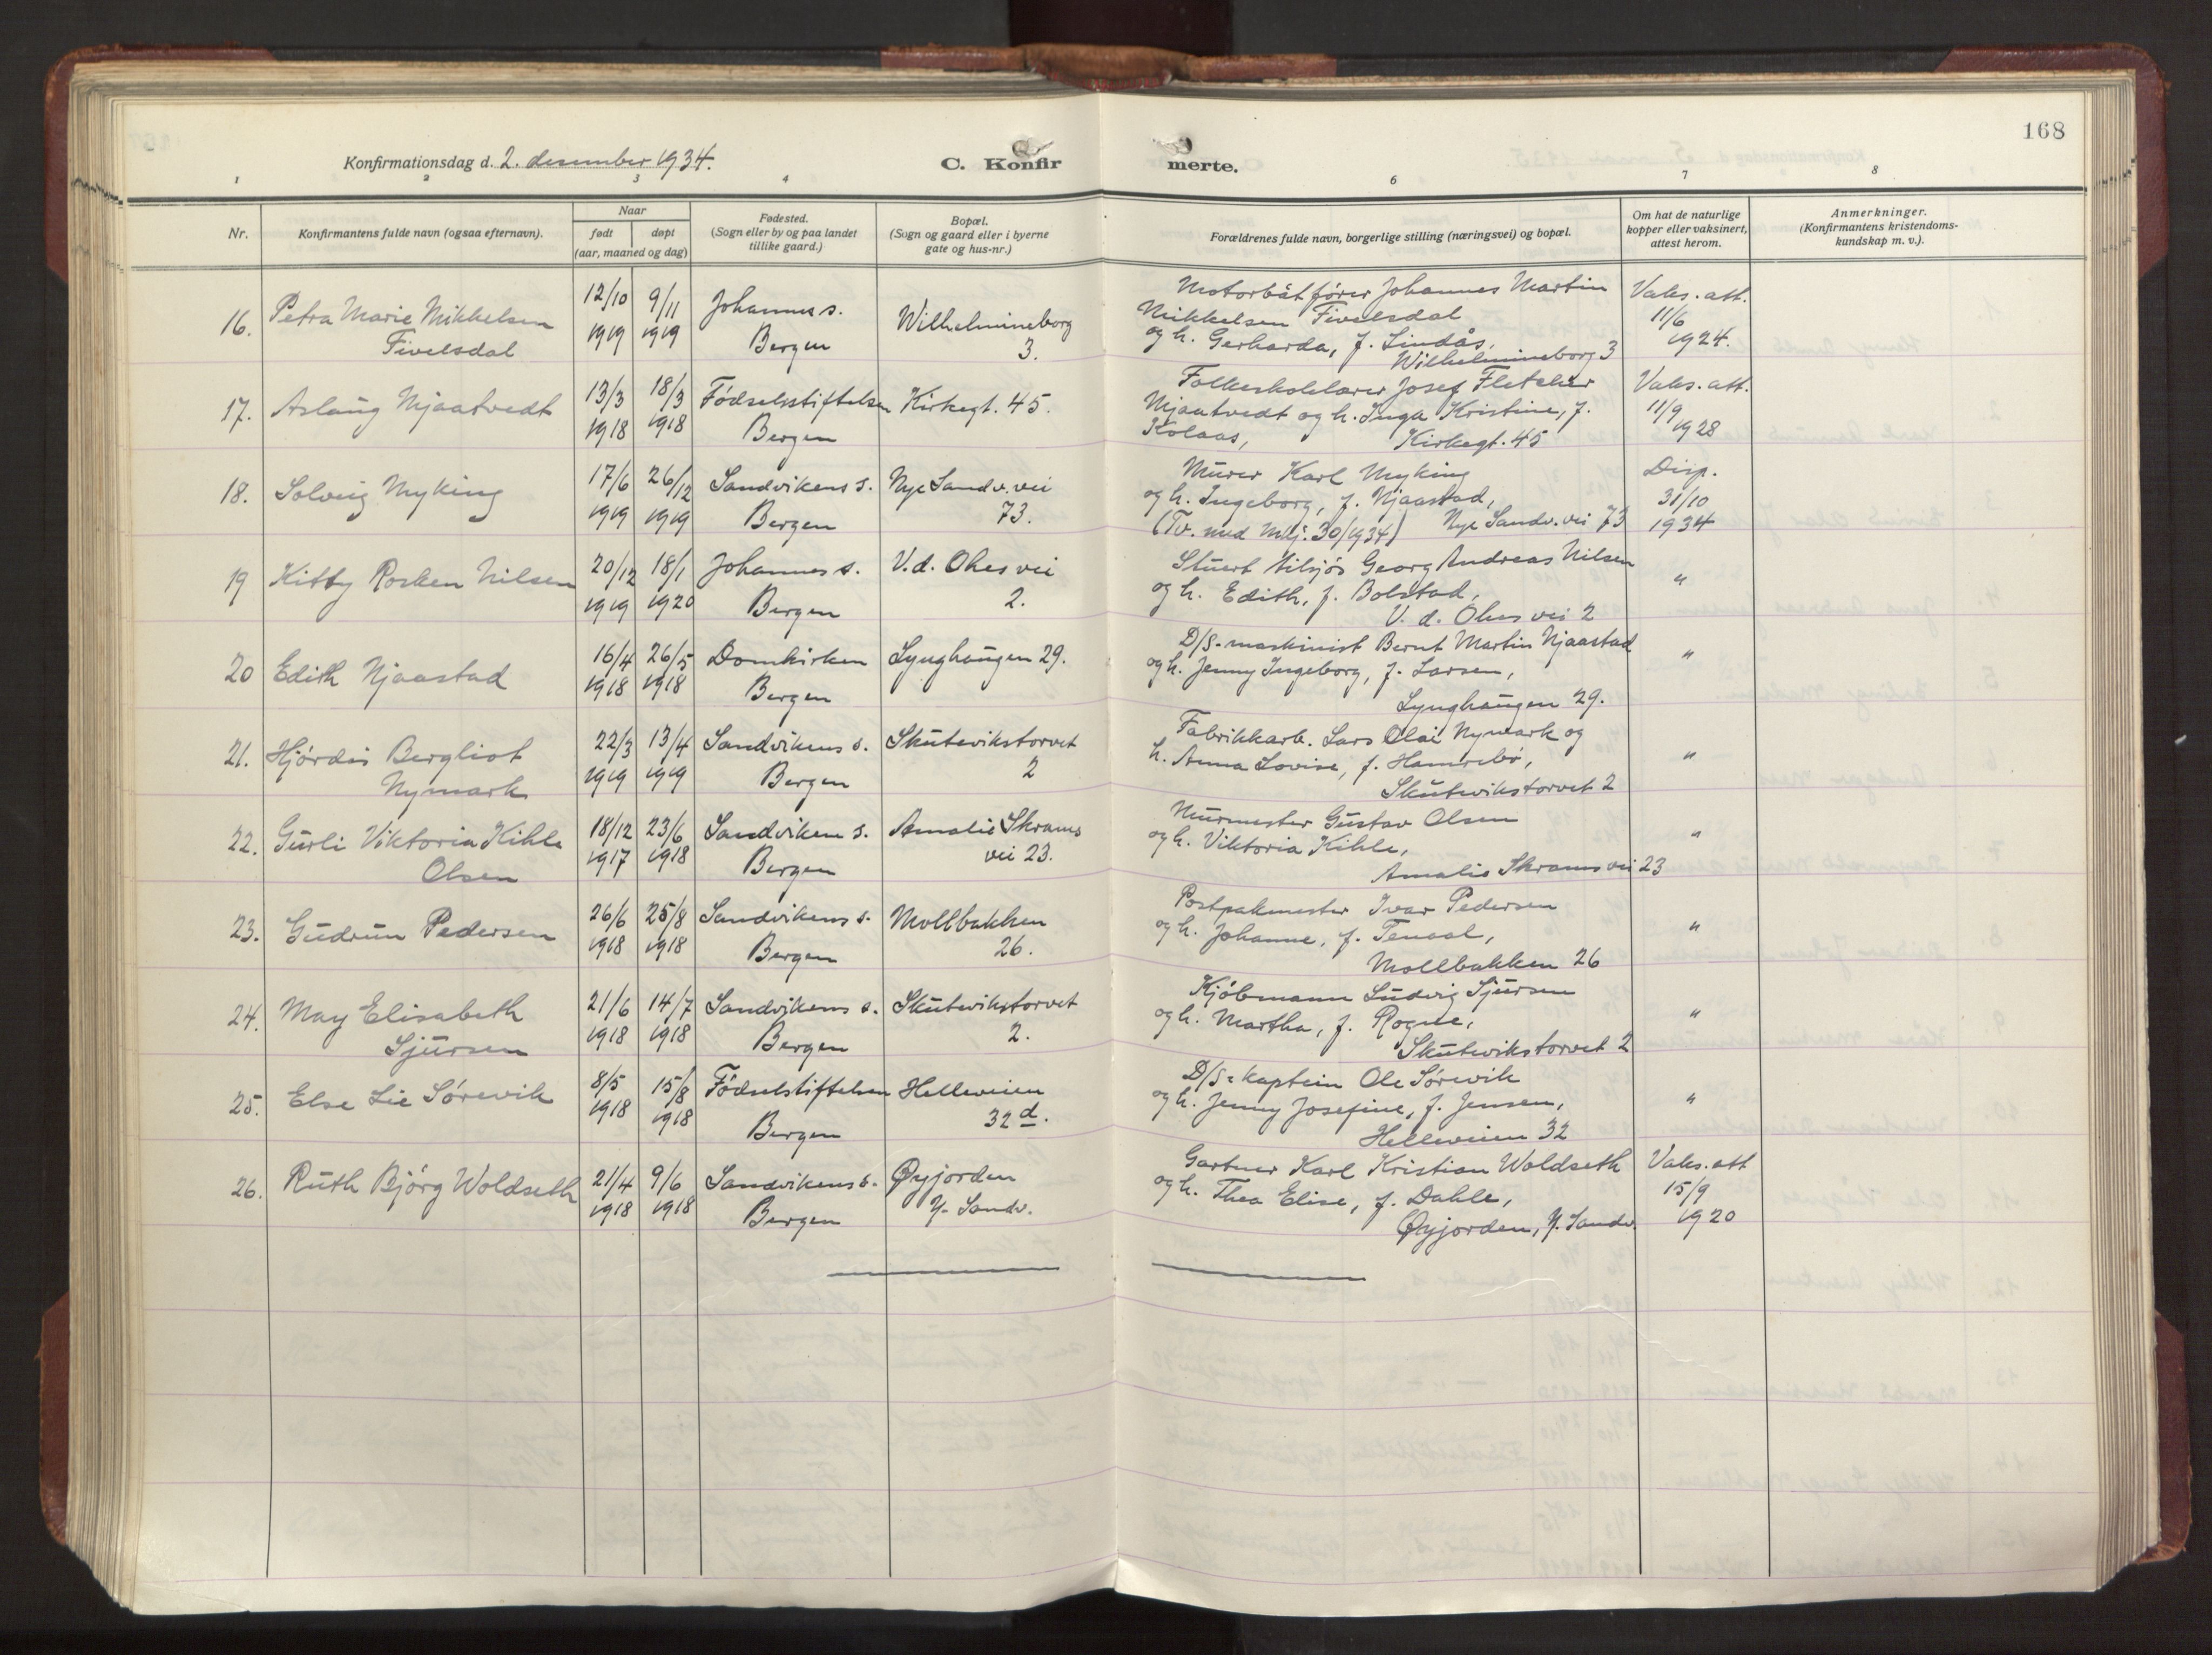 168
Konfirmationsdag d. 2. desember 1934.
C. Konfirmerte.
1 2 3 4 6 7 8
Nr.
Konfirmantens fulde navn (ogsaa efternavn).
Naar
født døpt
(aar, maaned og dag)
Fødested.
(Sogn eller by og paa landet
tillike gaard.)
Bopæl.
(Sogn og gaard eller i byerne
gate og hus-nr.)
Forældrenes fulde navn, borgerlige stilling (næringsvei) og bopæl.
Om hat de naturlige
kopper eller vaksinert,
attest herom.
Anmerkninger.
(Konfirmantens kristendoms-
kundskap m. v.).
16. Petra Marie Mikkelsen
Fivelsdal
12/10 1919
9/11 1919
Johannes s.
Bergen
Wilhelmineborg
3.
Motorbåtfører Johannes Martin
Mikkelsen Fivelsdal
og h. Gerharda, f. Lindås,
Wilhelmineborg 3
Vaks. att.
11/6
1924.
17. Aslaug Njaatvedt
13/3 1918
18/3 1918
Fødselsstiftelsen
Bergen
Kirkegt. 45.
Folkeskolelærer Josef Fletcher
Njaatvedt og h. Inga Kristine, f.
Kolaas,
Kirkegt. 45
Vaks. att.
11/9
1928
18. Solveig Myking
17/6 1919
26/12 1919
Sandvikens s.
Bergen
Nye Sandv. vei
73.
Murer Karl Myking
og h. Ingeborg, f. Njaastad,
(Tv. med Mlj. 30/1934) Nye Sandv. vei 73
Disp.
31/10
1934
19 Kitty Rosken Nilsen
20/12 1919
18/1 1920
Johannes s.
Bergen
V. d. Ohes vei
2.
Stuert tilsjøs Georg Andreas Nilsen
og h. Edith, f. Bolstad,
V. d. Ohes vei 2
"
20 Edith Njaastad
16/4 1918
26/5 1918
Domkirken
Bergen
Lynghaugen 29.
D/S-maskinist Bernt Martin Njaastad
og h. Jenny Ingeborg, f. Larsen,
Lynghaugen 29.
"
21. Hjørdis Bergliot
Nymark
22/3 1919
13/4 1919
Sandvikens s.
Bergen
Skutevikstorvet
2
Fabrikkarb. Lars Olai Nymark og
h. Anna Lovise, f. Hamrebø,
Skutevikstorvet 2
"
22. Gurli Viktoria Kihle
Olsen
18/12 1917
23/6 1918
Sandviken s.
Bergen
Amalie Skrams
vei 23.
Murmester Gustav Olsen
og h. Viktoria Kihle,
Amalie Skrams vei 23
"
23. Gudrun Pedersen
26/6 1918
25/8 1918
Sandvikens s.
Bergen
Møllbakken
26.
Postpakmester Ivar Pedersen
og h. Johanne, f.
Møllbakken 26
"
24. May Elisabeth
Sjursen
21/6 1918
14/7 1918
Sandvikens s.
Bergen
Skutevikstorvet
2.
Kjøbmann Ludvig Sjursen
og h. Martha, f. Rogne,
Skutevikstorvet 2
"
25. Else Lie Sørevik
8/5 1918
15/8 1918
Fødselstiftelsen
Bergen
Helleveien
32 d.
D/S=kaptein Ole Sørevik
og h. Jenny Josefine, f. Jensen,
Helleveien 32
"
26. Ruth Bjørg Woldseth
21/4 1918
9/6 1918
Sandvikens s.
Bergen
Øyjorden
Y. Sandv.
Gartner Karl Kristian Woldseth
og h. Thea Elise, f. Dahle,
Øyjorden, Y. Sandv.
Vaks. att
15/9
1920